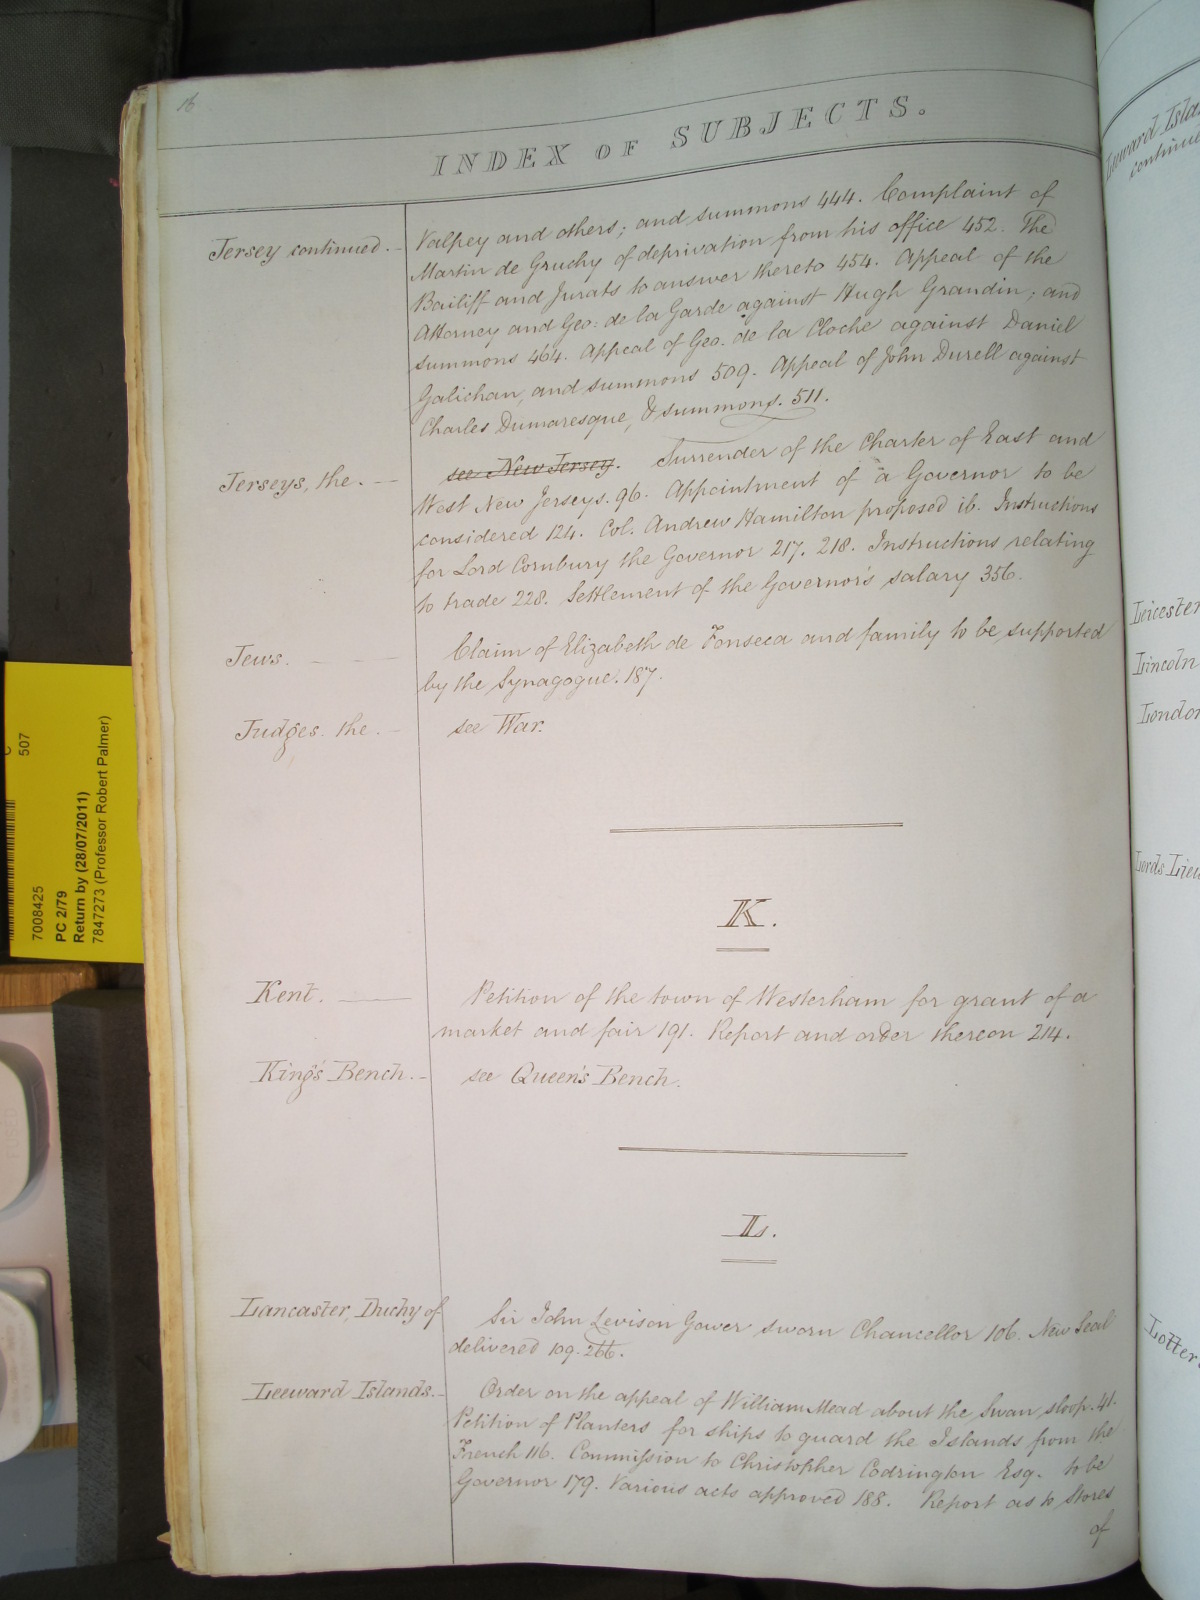 16
INDEX OF SUBJECTS.
Jersey continued. -
Valpey and others; and summons 444. Complaint of
Martin de Gruchy of deprivation from his office 452. The
Bailiff and Jurats to answer thereto 454. Appeal of the
Attorney and Geo: de la Garde against Hugh Grandin; and
summons 464. Appeal of Geo. de la Cloche against Daniel
Galichan, and summons 509. Appeal of John Durell against
Charles Dumaresque, & summons. 511.
Jerseys, the. -
see New Jersey. Surrender of the Charter of East and
West New Jerseys. 96. Appointment of a Governor to be
considered 124. Col. Andrew Hamilton proposed ib. Instructions
for Lord Cornbury the Governor 217. 218. Instructions relating
to trade 228. Settlement of the Governor's salary 356.
Jews. - -
Claim of Elizabeth de Fonseca and family to be supported
by the Synagogue. 187.
Judges. the. -
see War.
K.
Kent. -
Petition of the town of Westerham for grant of a
market and fair 191. Report and order thereon 214.
King's Bench. -
see Queen's Bench.
L.
Lancaster, Duchy of
Sir John Levison Gower sworn Chancellor 106. New Seal
delivered 109. 266.
Leeward Islands. -
Order on the appeal of William Mead about the Swan sloop. 41.
Petition of Planters for ships to guard the Islands from the
French 116. Commission to Christopher Codrington Esq. to be
Governor 179. Various acts approved 188. Report as to Stores
of
507
7008425
PC 2/79
Return by (28/07/2011)
7847273 (Professor Robert Palmer)
Leeward Isla
continu
Leicester
Lincoln
London
Lords Lieu
Lotter